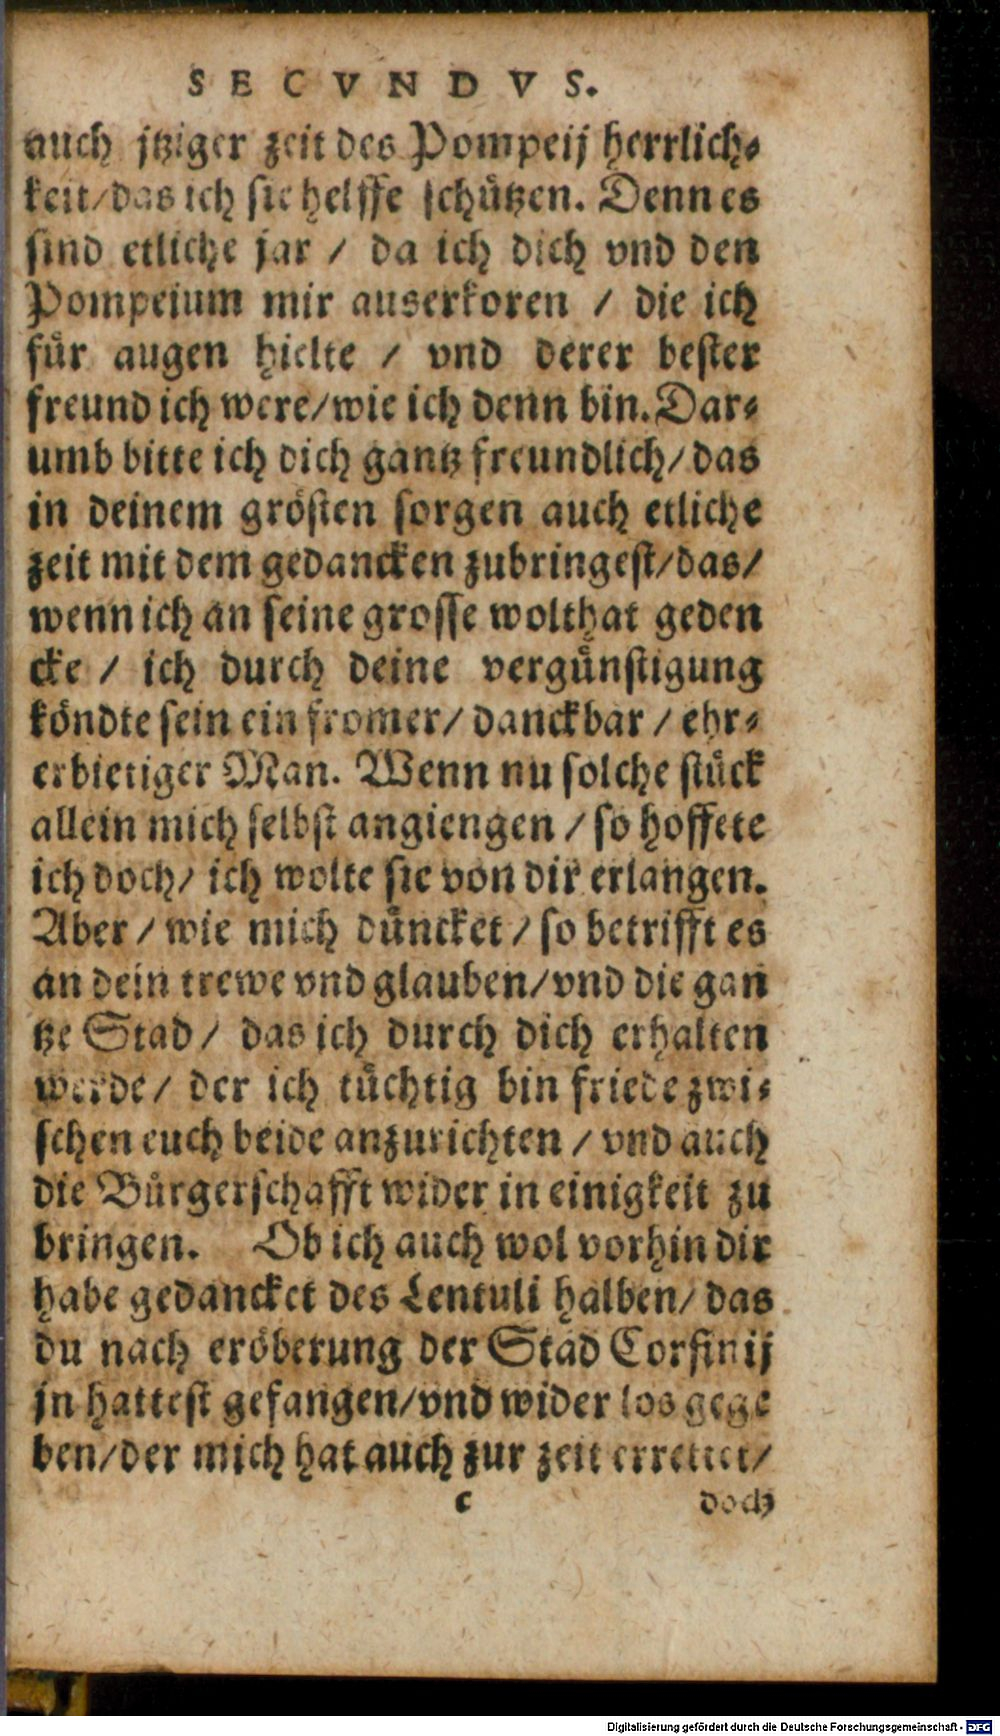 SECVNDVS.
auch jtziger zeit des Pompeij herrlich⸗
keit/das ich sie helffe schützen. Denn es
sind etliche jar / da ich dich vnd den
Pompeium mir auserkoren / die ich
für augen hielte / vnd derer bester
freund ich were/wie ich denn bin. Dar⸗
umb bitte ich dich gantz freundlich/das
in deinem grösten sorgen auch etliche
zeit mit dem gedancken zubringest/das/
wenn ich an seine grosse wolthat geden
cke / ich durch deine vergünstigung
köndte sein ein fromer/ danckbar / ehr⸗
erbietiger Man. Wenn nu solche stück
allein mich selbst angiengen / so hoffete
ich doch/ ich wolte sie von dir erlangen.
Aber / wie mich düncket / so betrifft es
an dein trewe vnd glauben/vnd die gan
tze Stad/ das ich durch dich erhalten
werde/ der ich tüchtig bin friede zwi⸗
schen euch beide anzurichten / vnd auch
die Bürgerschafft wider in einigkeit zu
bringen. Ob ich auch wol vorhin dir
habe gedancket des Lentuli halben/ das
du nach eröberung der Stad Corfinij
jn hattest gefangen/vnd wider los gege
ben/der mich hat auch zur zeit errettet/
c doch
Digitalisierung gefördert durch die Deutsche Forschungsgemeinschaft - DFG